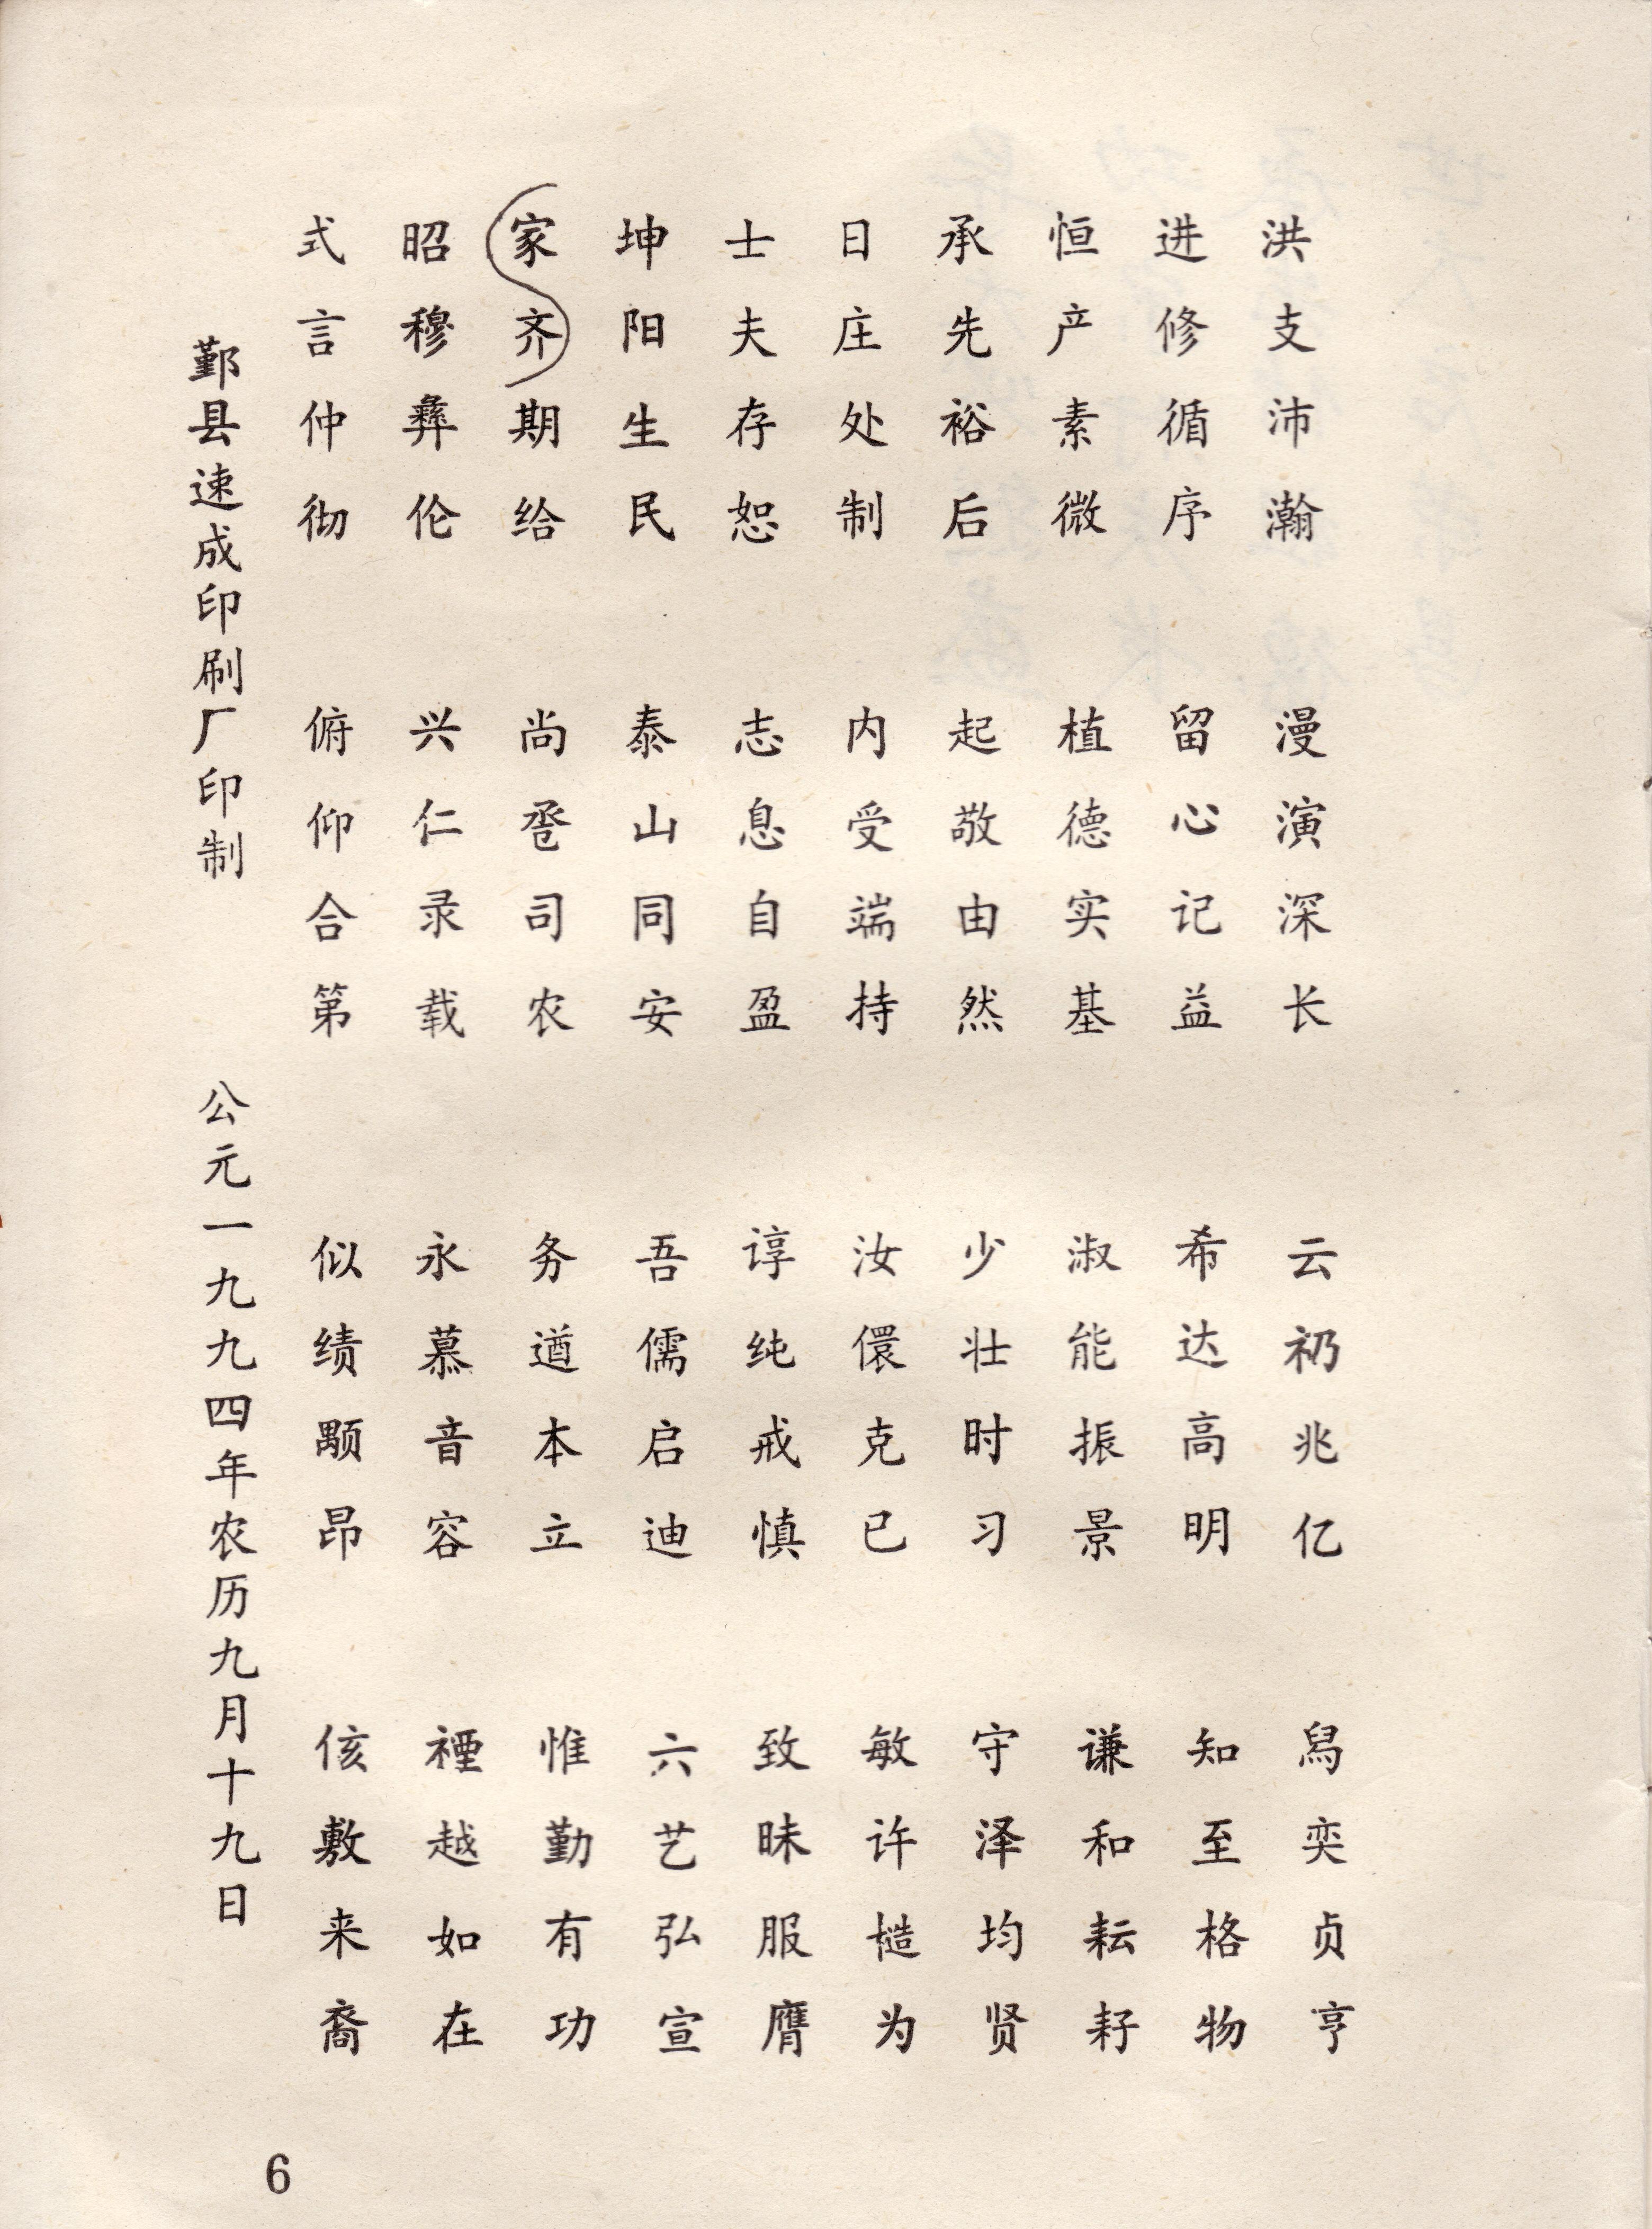 洪支沛瀚 漫演深长 云礽兆亿 舄奕贞亨
进修循序 留心记益 希达高明 知至格物
恒产素微 植德实基 淑能振景 谦和耘耔
承先裕后 起敬由然 少壮时习 守泽均贤
日庄处制 内受端持 汝儇克已 敏许慥为
士夫存恕 志息自盈 谆纯戒慎 致昧服膺
坤阳生民 泰山同安 吾儒启迪 六艺弘宣
家齐期给 尚卺司农 务遒本立 惟勤有功
昭穆彝伦 兴仁录载 永慕音容 禋越如在
式言仲彻 俯仰合第 似绩颙昂 侅敷来裔
鄞县速成印刷厂印制 公元一九九四年农历九月十九日
6